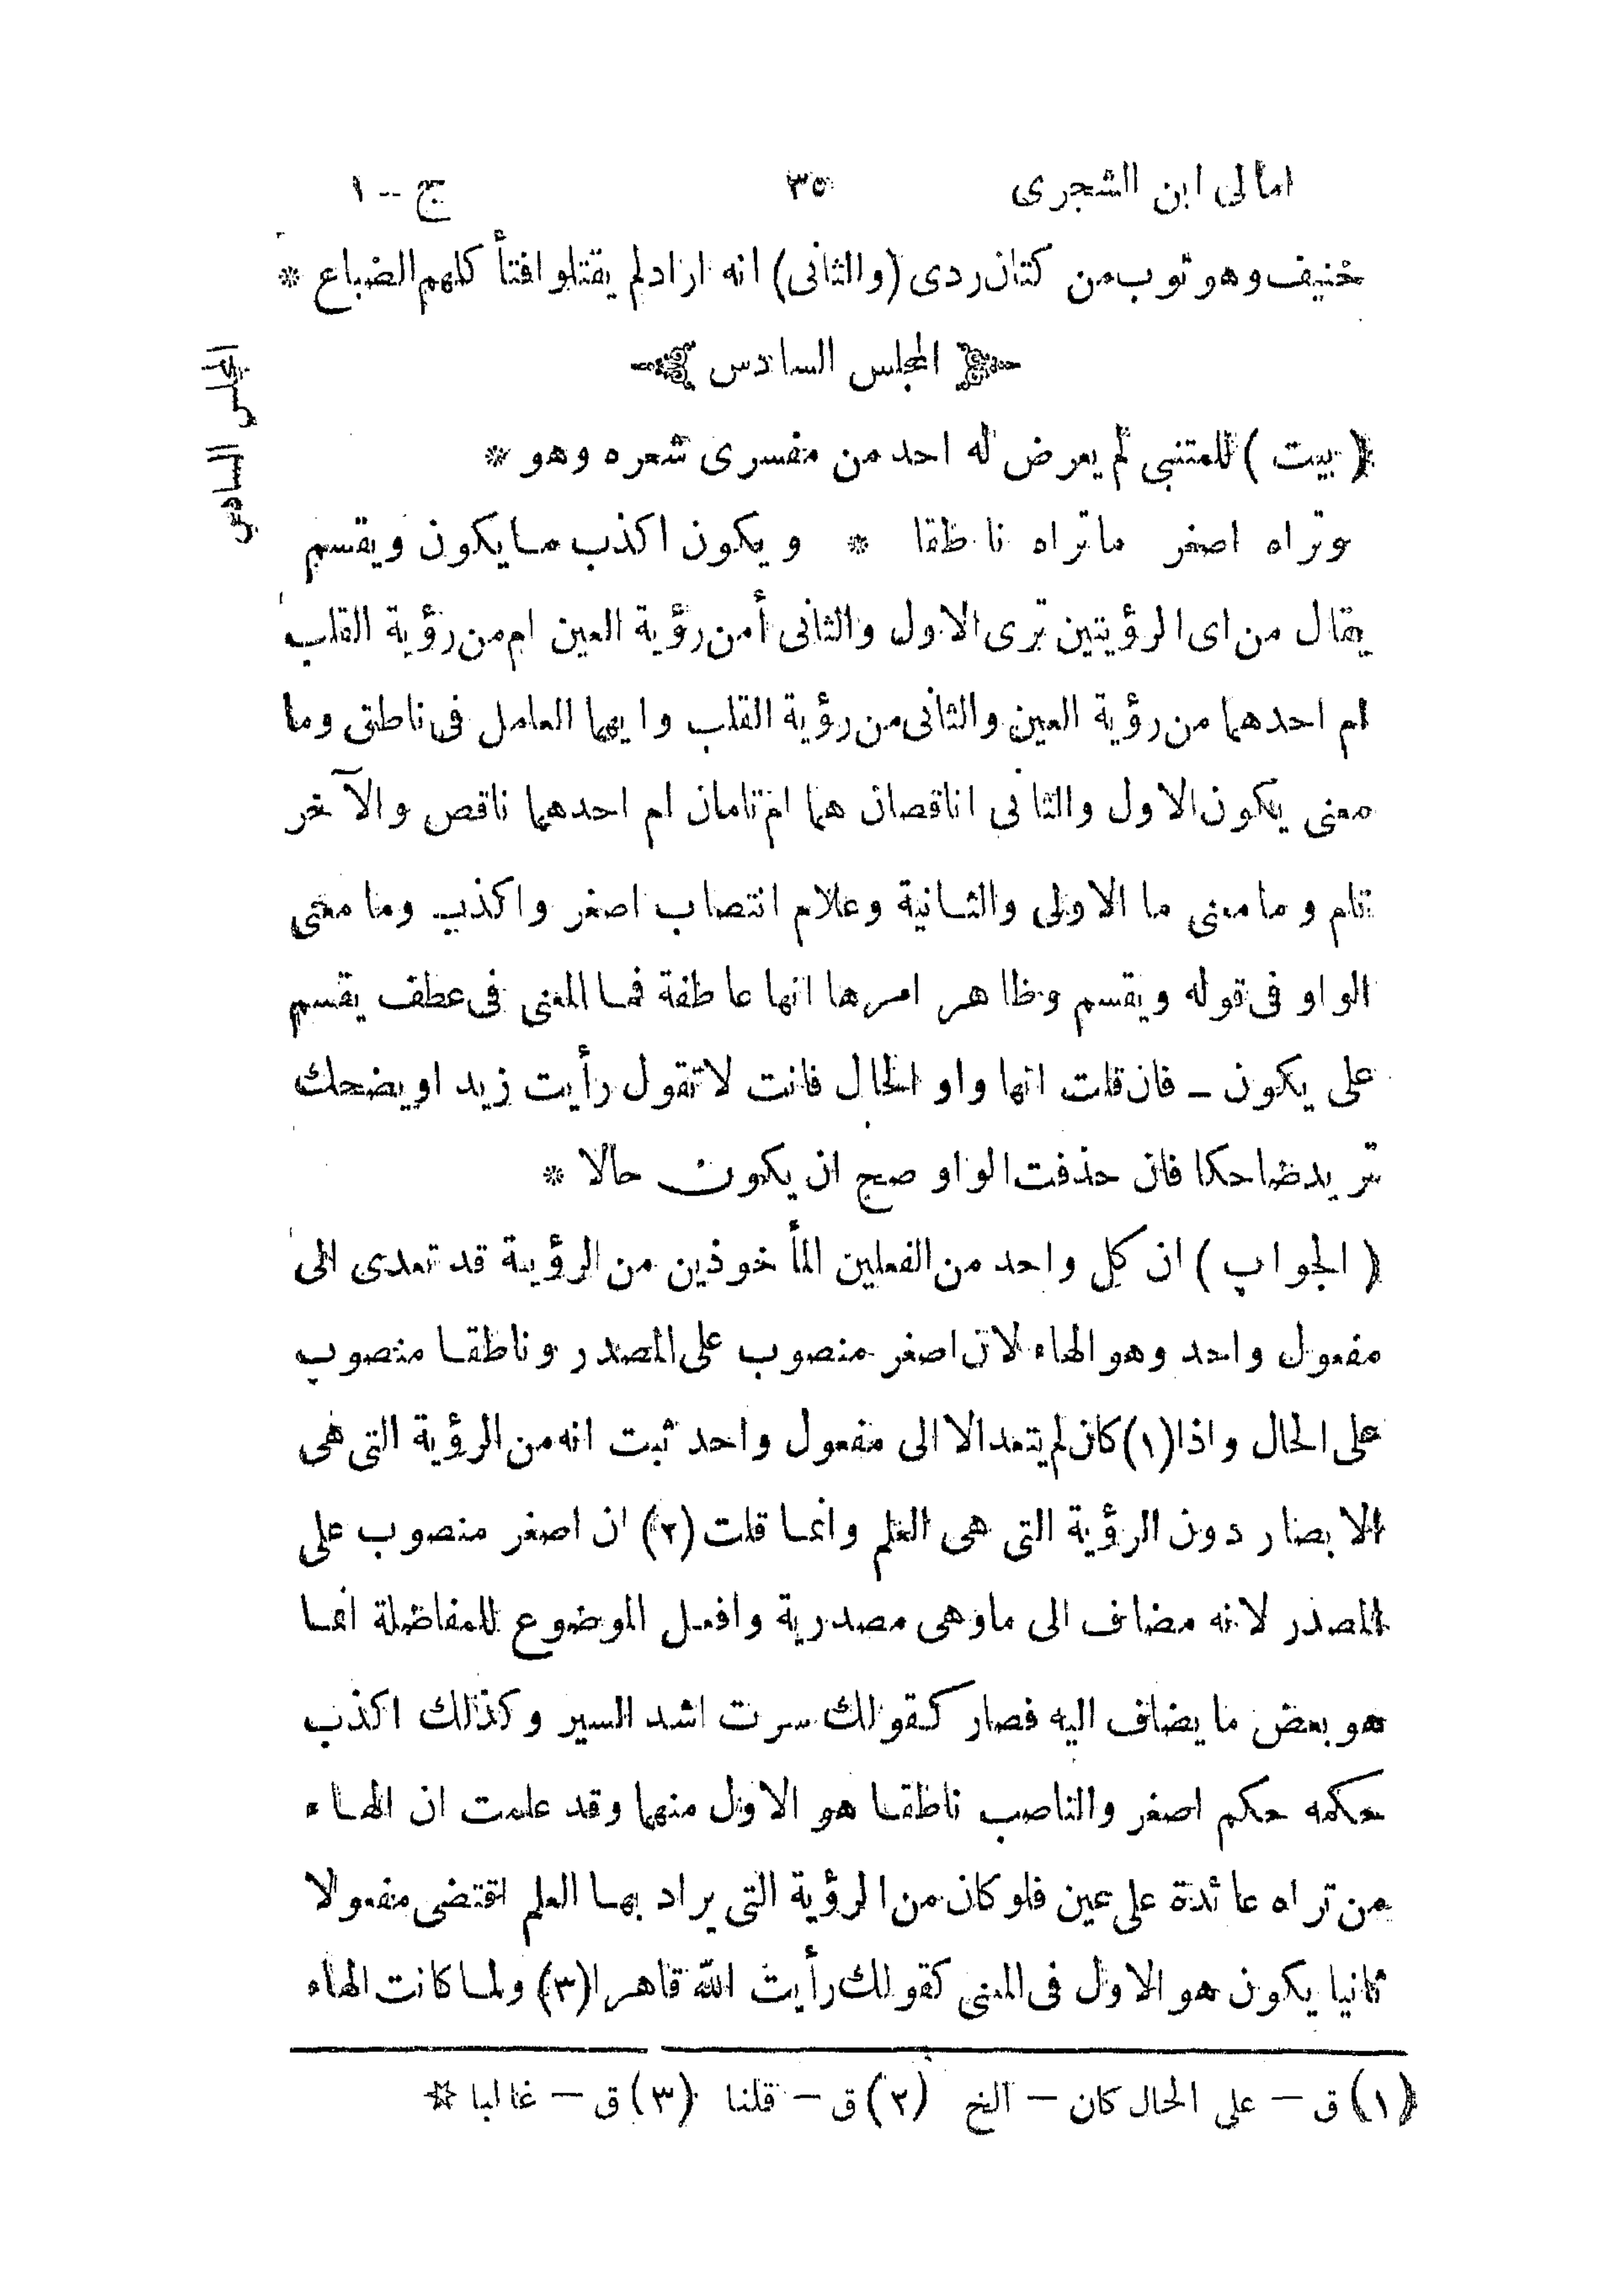 امالى ابن الشجرى ٣٥ ج -- ١
خنيف وهو ثوب من كتان ردى (والثانى) انه ارادلم يقتلوا فتأ كلهم الضباع *
المجلس السادس
المجلس السادس
( بيت ) للمتنبى لم يعرض له احد من مفسرى شعره وهو *
وتراه اصغر ماتراه ناطقا * ويكون اكذب مايكون ويقسم
يقال من اى الرؤيتين ترى الاول والثانى أمن رؤية العين ام من رؤية القلب
ام احدهما من رؤية العين والثانى من رؤية القلب وايهما العامل فى ناطق وما
معنى يكون الاول والثانى اناقصان هما ام تامان ام احدهما ناقص والآخر
تام وما معنى ما الاولى والثانية وعلام انتصاب اصغر واكذب وما معنى
الواو فى قوله ويقسم وظاهر امرها انها عاطفة فما المعنى فى عطف يقسم
على يكون – فان قلت انها واو الحال فانت لاتقول رأيت زيد اويضحك
تريد ضاحكا فان حذفت الواو صح ان يكون حالا *
( الجواب ) ان كل واحد من الفعلين المأخوذين من الرؤية قد تعدى الى
مفعول واحد وهو الهاء لان اصغر منصوب على المصدر وناطقا منصوب
على الحال واذا (١) كان لم يتعد الا الى مفعول واحد ثبت انه من الرؤية التى هى
الابصار دون الرؤية التى هى العلم وانما قلت (٢) ان اصغر منصوب على
المصدر لانه مضاف الى ماوهى مصدرية وافعل الموضوع للمفاضلة انما
هو بعض ما يضاف اليه فصار كقولك سرت اشد السير وكذلك اكذب
حكمه حكم اصغر والناصب ناطقا هو الاول منهما وقد علمت ان الهاء
من تراه عائدة على عين فلو كان من الرؤية التى يراد بها العلم اقتضى مفعولا
ثانيا يكون هو الاول فى المعنى كقولك رأيت الله قاهرا (٣) ولما كانت الهاء
(١) ق – على الحال كان – الخ (٢) ق – قلنا (٣) ق – غالبا *